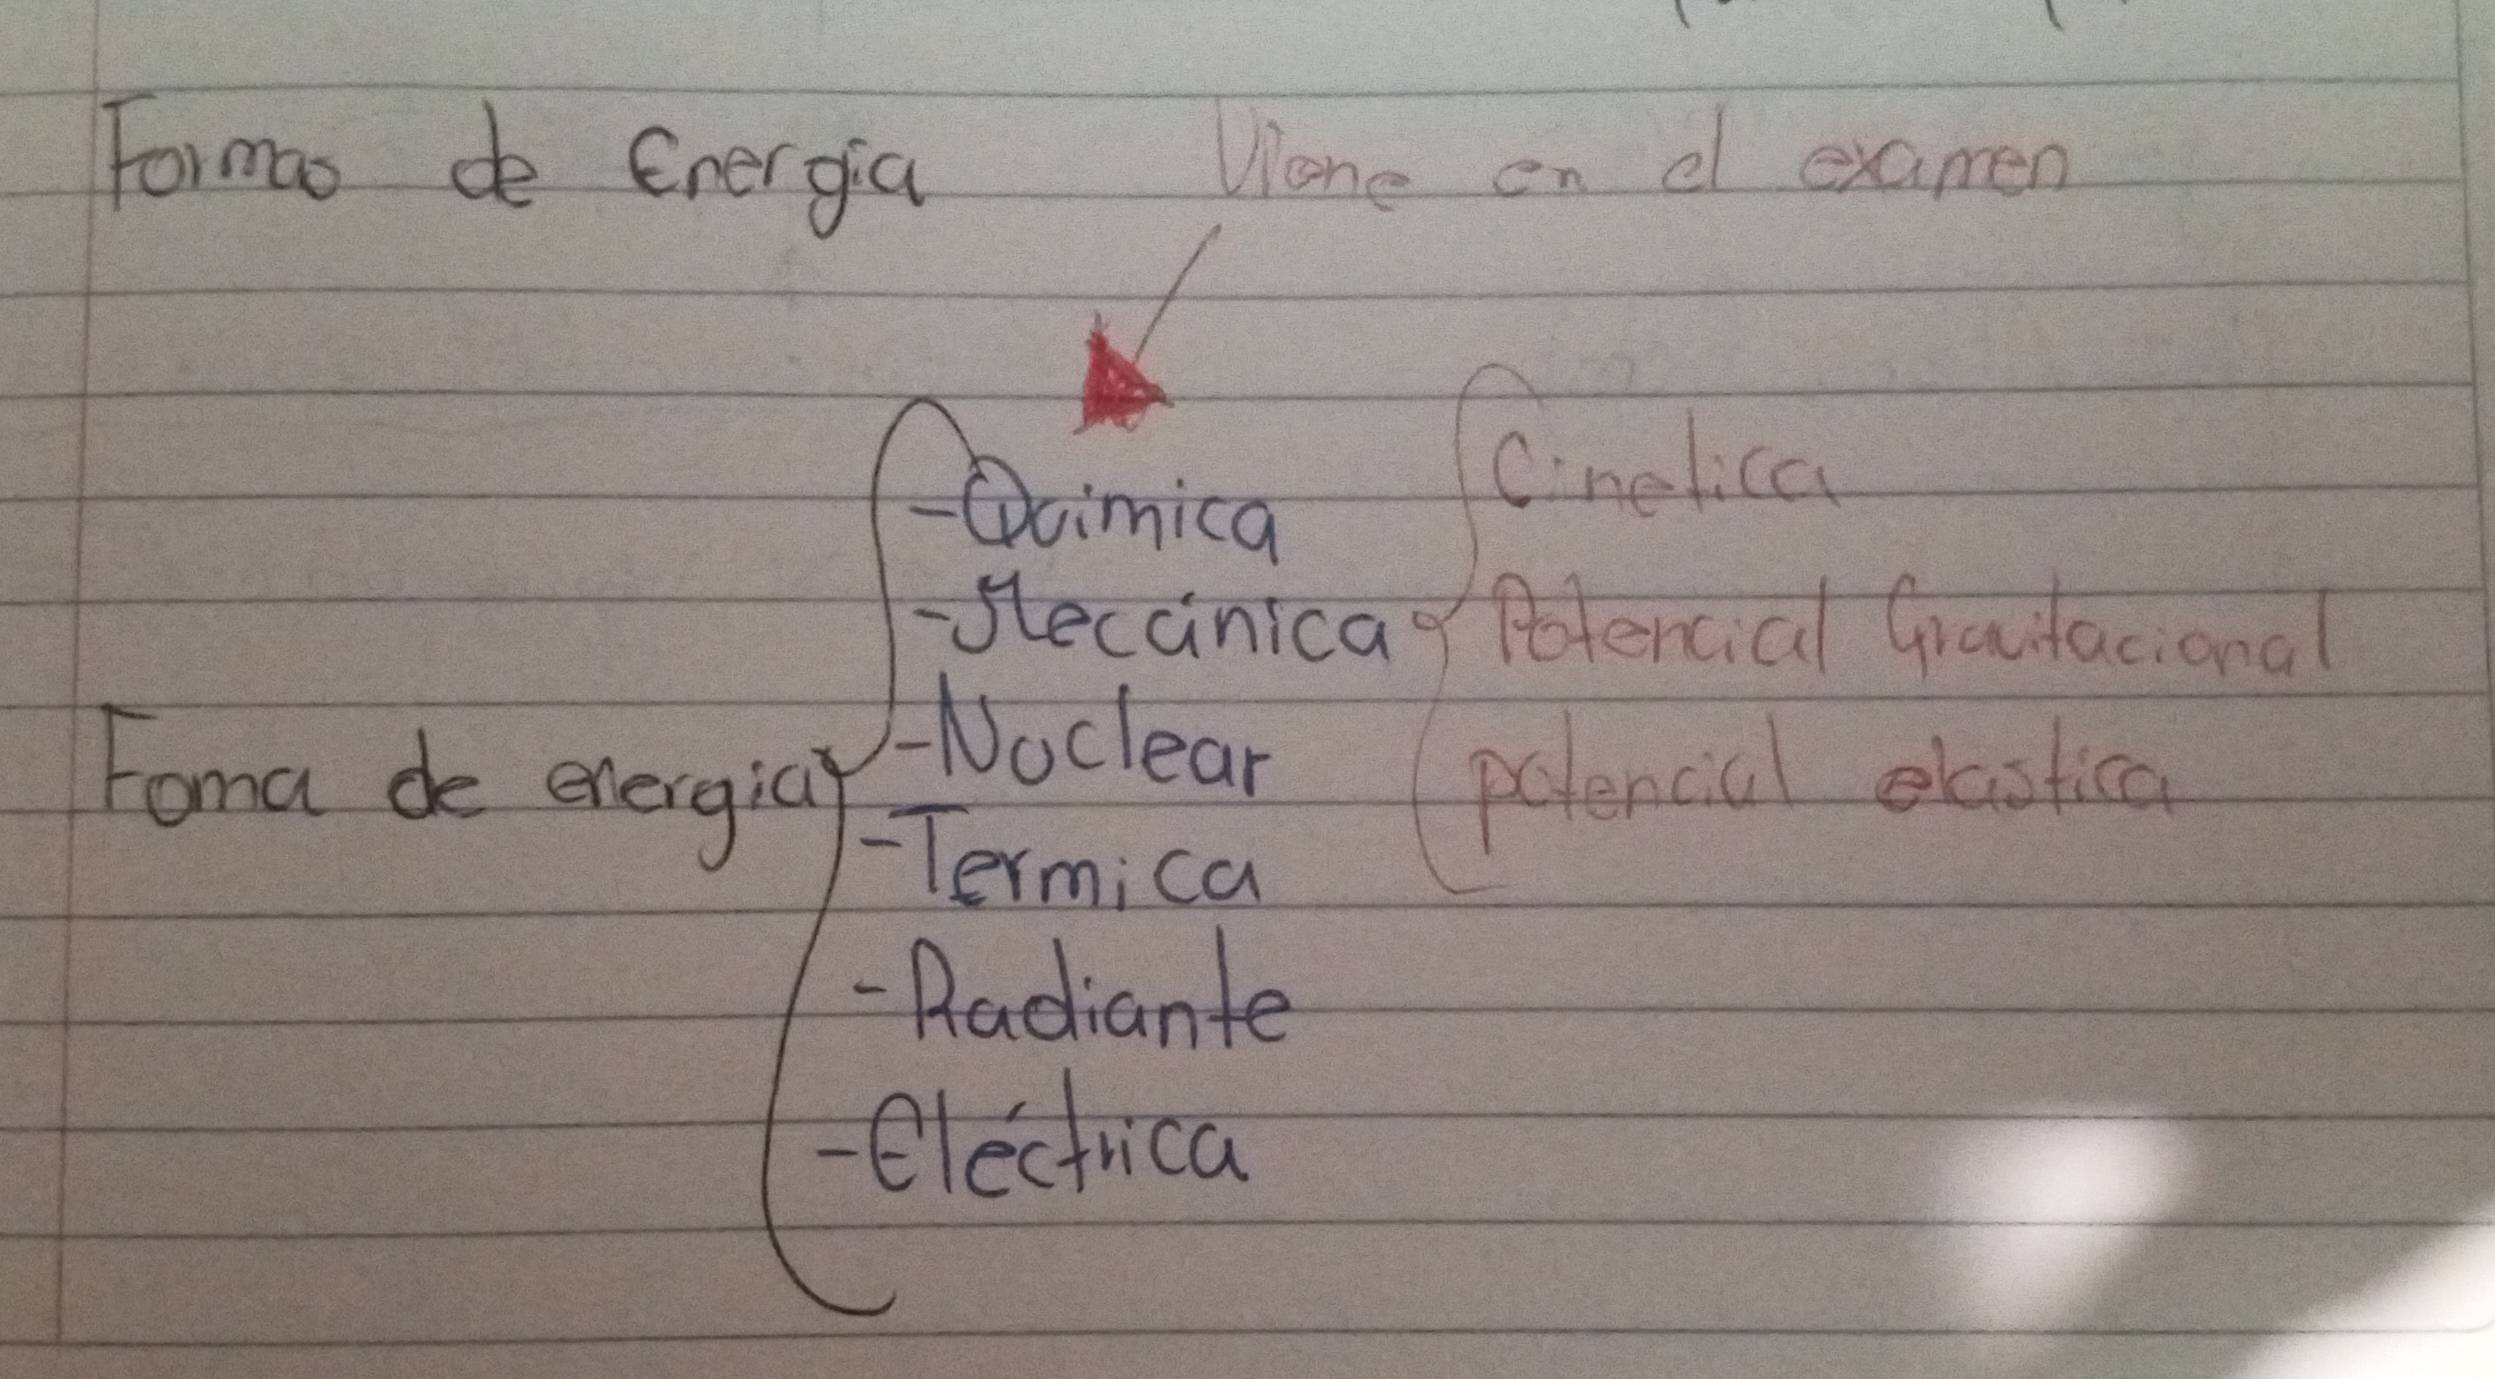 Formas de Energia
Viene en el examen
Foma de energia
-Quimica
-Mecánica
-Nuclear
-Termica
-Radiante
-Eléctrica
Cinetica
Potencial Gravitacional
potencial elastica